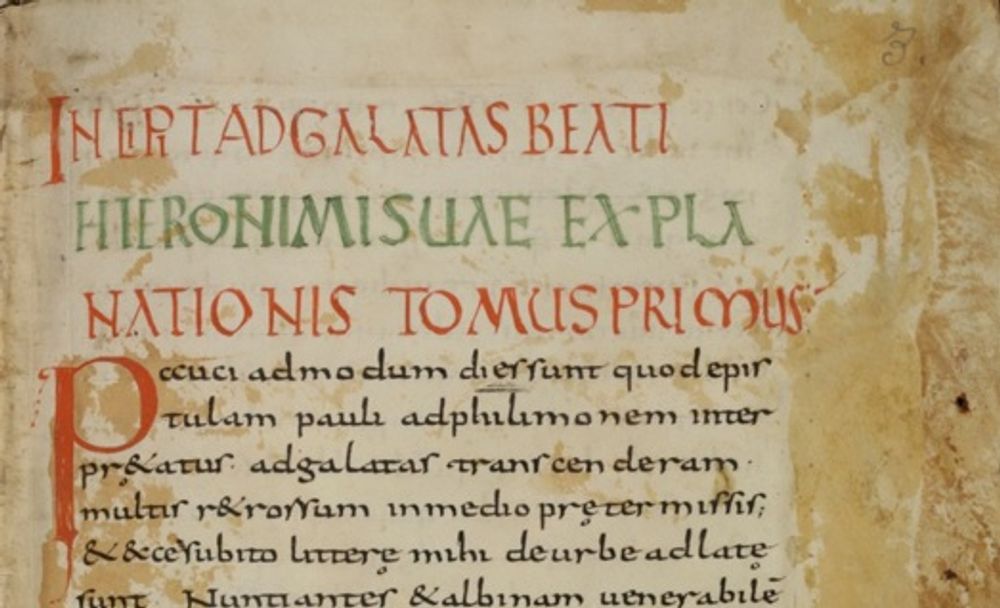 3.
INCIPIT AD GALATAS BEATI
HIERONIMI SUAE EXPLA
NATIONIS TOMUS PRIMUS
Pauci admodum dies sunt quod epis
tulam pauli ad philimonem inter
pr&atus. ad galatas transcenderam.
multis r&rorsum in medio prętermissis;
& &ce subito litterę mihi de urbe adlatę
sunt. Nuntiantes &albinam uenerabilē